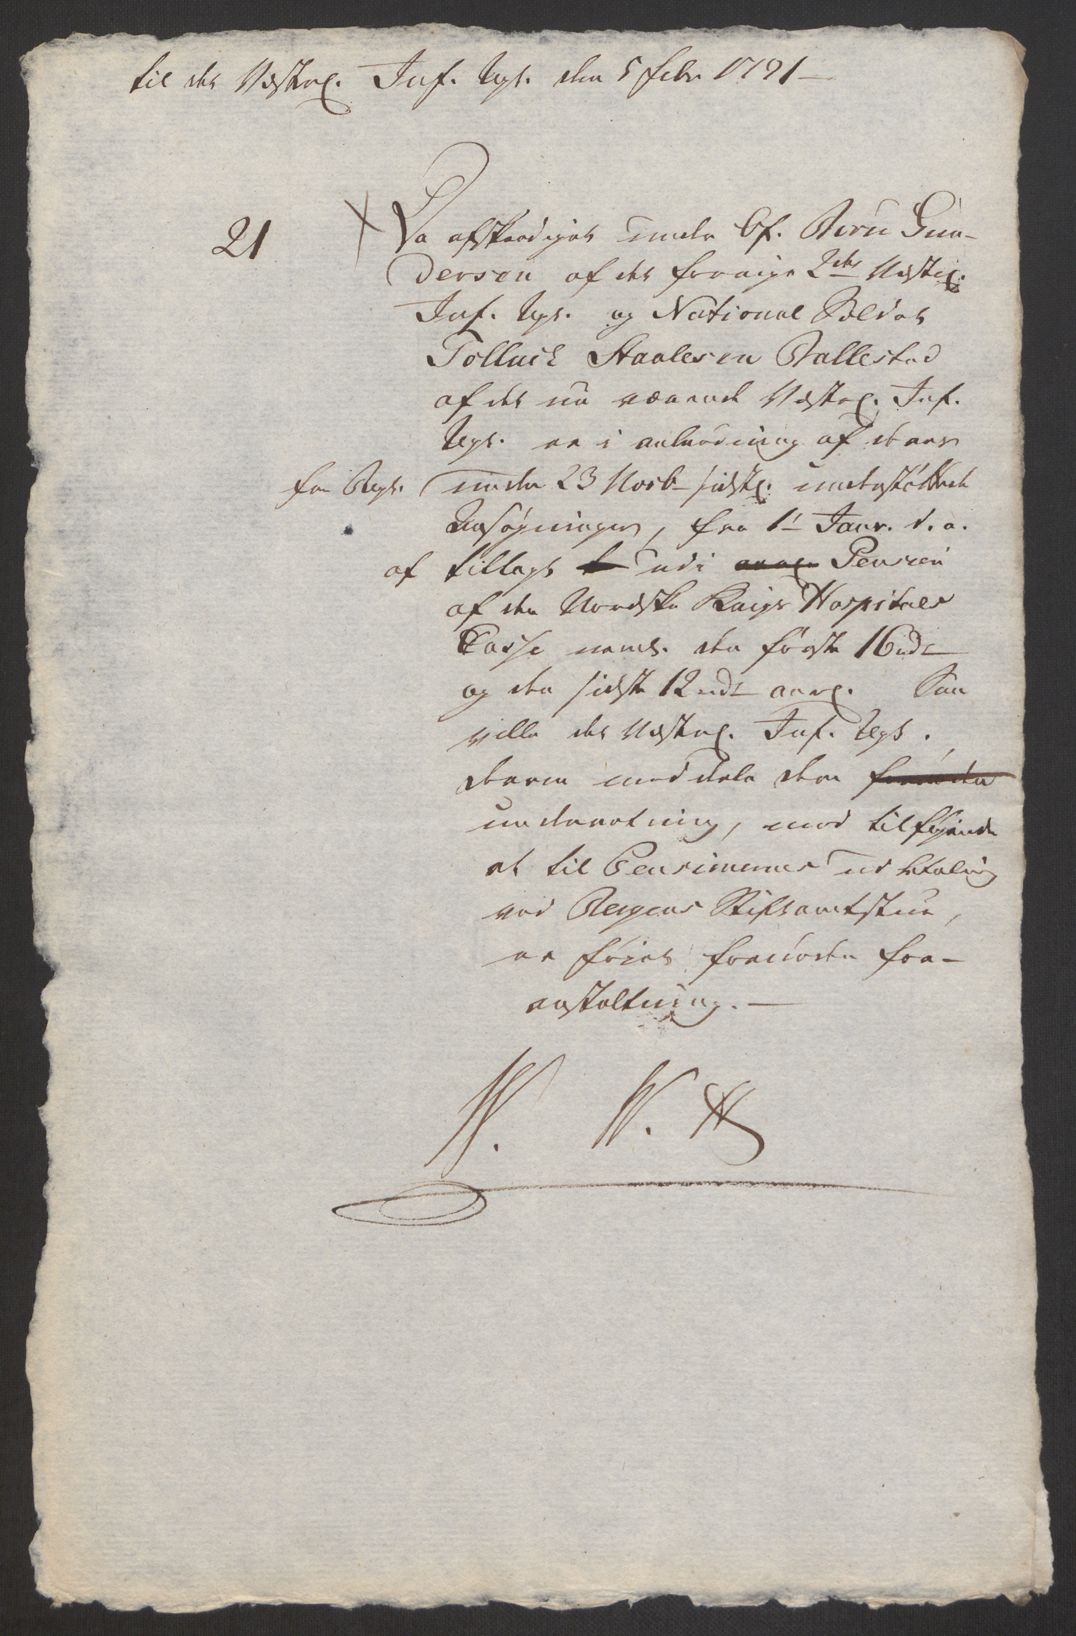 til det Vestre. Inf. Regt. den 5 Febr 1791 —
21
Da afskeediget under Of. Gun-
dersen af det forrige 2det Vestre.
Inf. Regt. og National Soldat
Tollack Staalesen Ballestad
af det nu værende Vestre. Inf.
Regt. er i anledning af deres
for Regt. under 23 Novb. sidstl. understöttede
Ansøgninger, fra 1te Janr. d. a.
af tillagt udi Pension
af den Norske Krigs Hospitals
Casse neml. den første 16 rd
og den sidste 12 rd aarl. Saa
ville det Vestre. Inf. Regt.
derom meddele dem
underretning, med tilføjende
at til Pensionernes udbetaling
ved Bergens Stiftsamtstue,
er føjet fornøden for-
anstaltning. —